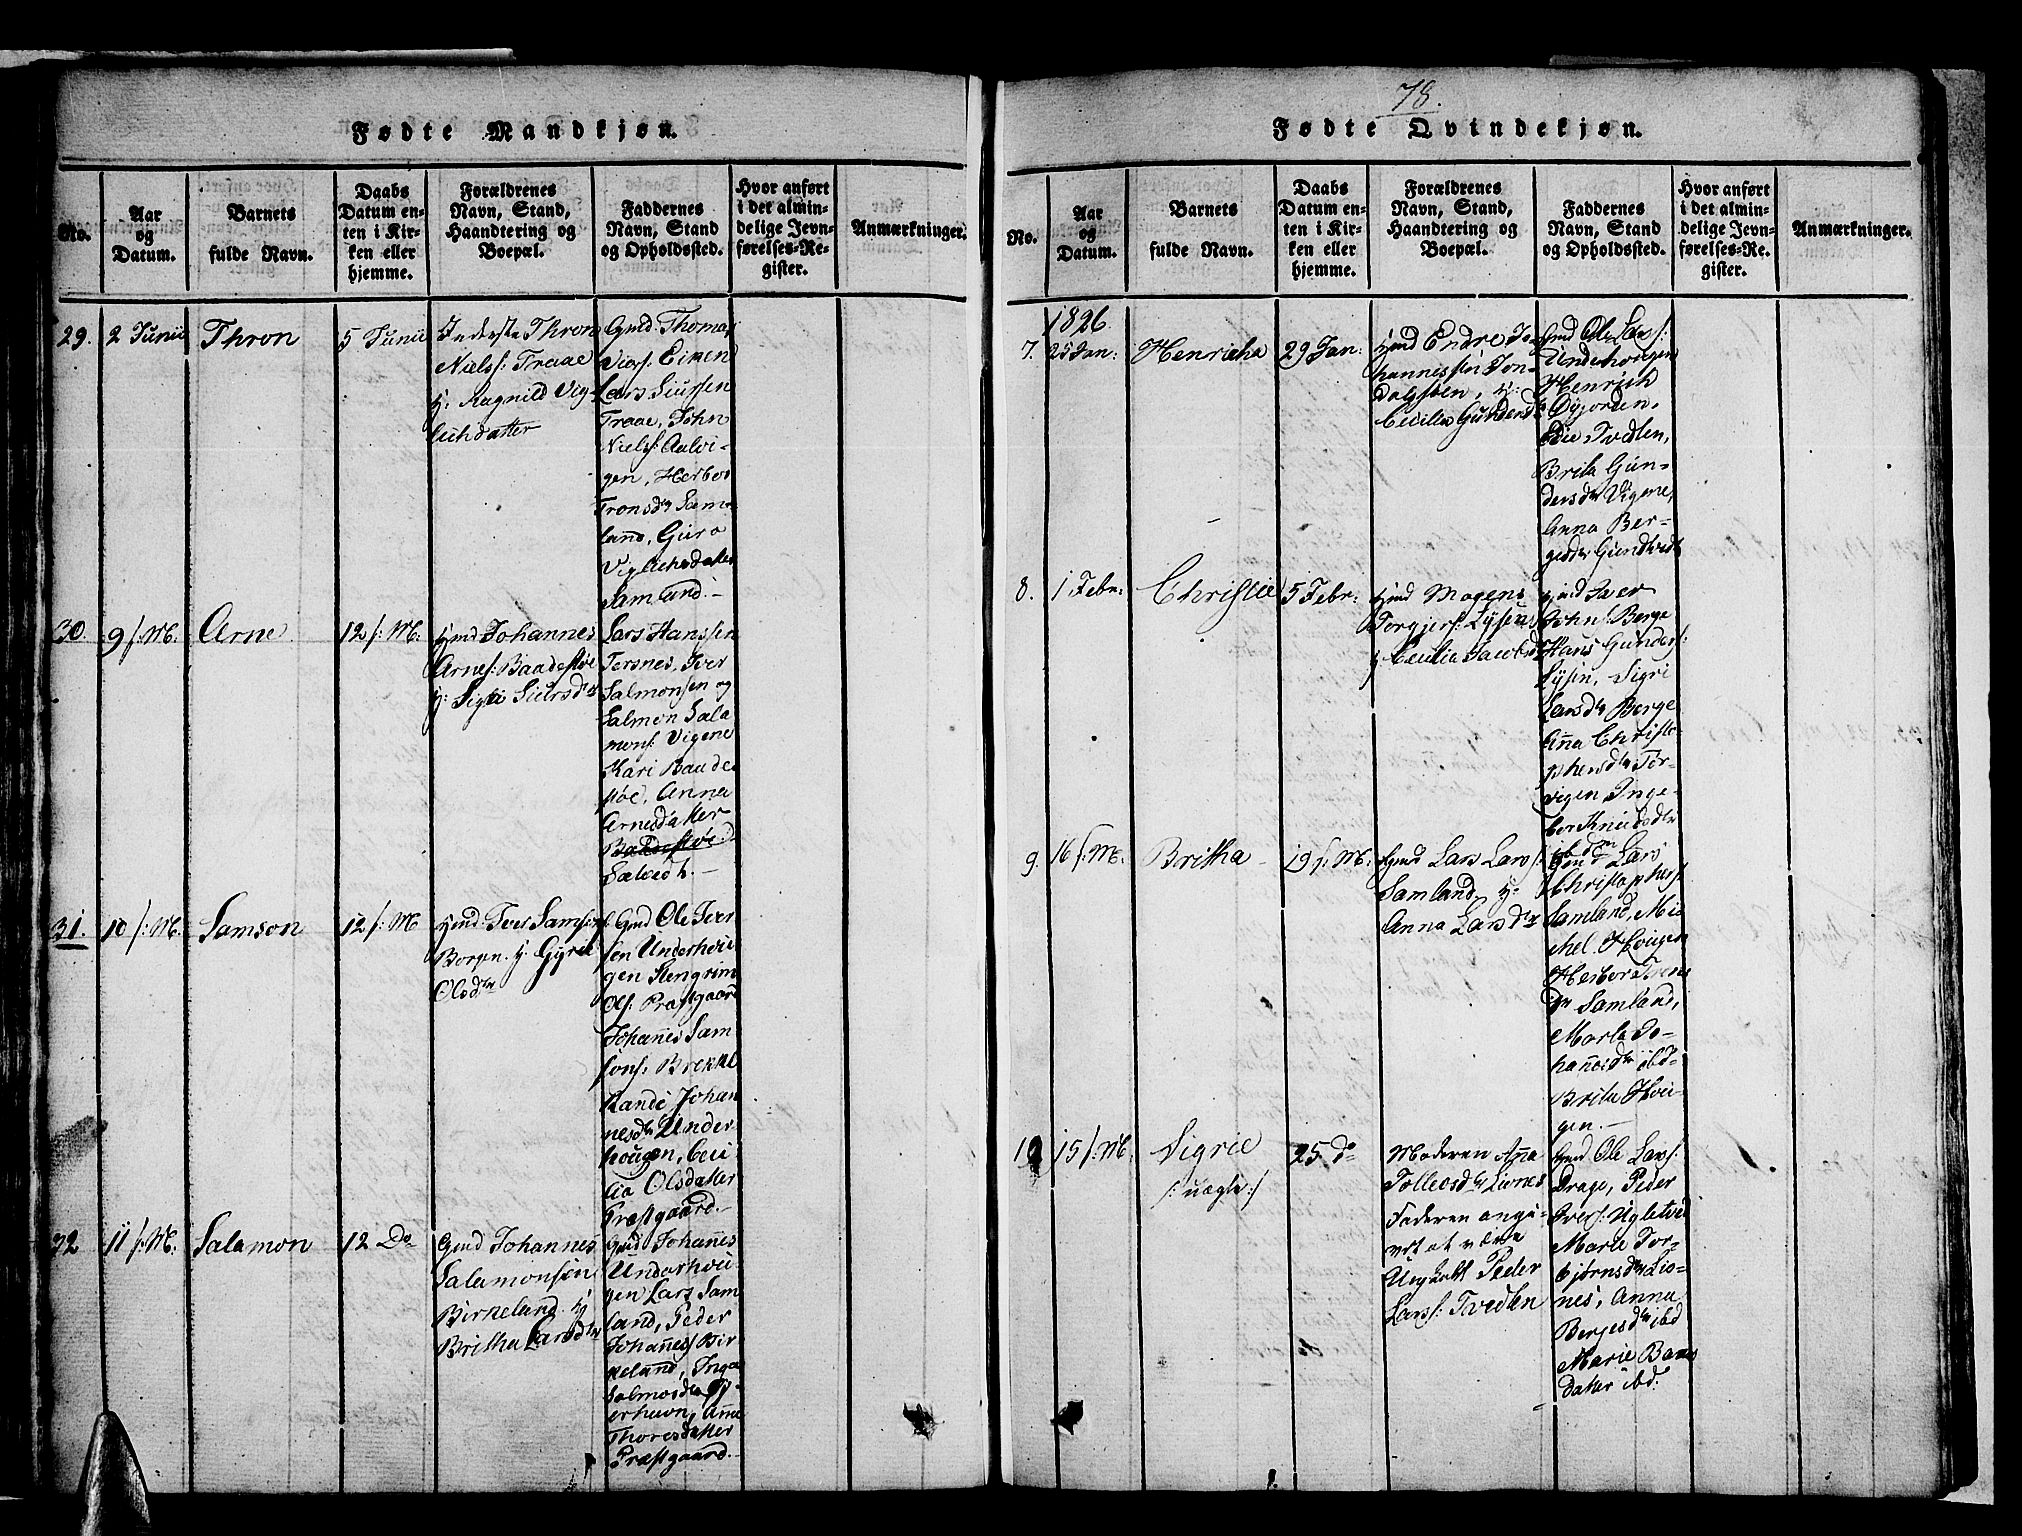 Fødte Mandkjøn.
No.
Aar
og
Datum.
Barnets
fulde Navn.
Daabs
Datum en-
ten i Kir-
ken eller
hjemme.
Forældrenes
Navn, Stand,
Haandtering og
Boepæl.
Faddernes
Navn, Stand
og Opholdssted.
Hvor anført
i det almin-
delige Jevn-
førelses-Re-
gister.
Anmærkninger.
29.
2 Junii
Thron
5 Junii
Inderste Thron
Niels: Traae
Ragnild Vig-
lichdatter
Gmd. Thomas
Lars Siursen
Traae, John
Niels: Aalvi-
gen, Herbor
Tronsdtr Sam-
land, Guro
Viglichsdatter
Samland.-
30.
9 s: M.
Arne
12 s: M.
Gmd Johannes
Arnes: Baadestøe
Siursdtr
Lars Hanssen
Tersnes, Iver
Salmonsen og
Salmon Sala
mons: Vigene
Kari Baade-
støe, Anna
Arnesdatter
Baadestøe
31.
10 s: M.
Samson
12 s: M
Gmd: Iver Samsons
Olsdtr
Gmd Ole Iver
sen Underhou
gen Stengrim
Ols: Præstgaard
Johanes Sam
sons: Brekke
Randi Johan
nesdtr Under
hougen, Ceci
lia Olsdatter
Præstgaard.-
32
11 s: M.
Salamon
12 Do
Gmd Johannes
Salamonsøn
Birkeland
Britha Larsdtr
Gmd Johanes
Underhou
gen Lars Sam
land, Peder
Johannes: Bir
keland, Inga
Salmosdtr
Thoresdatter
Præstgaard.
78.
Fødte Qvindekjøn.
No.
Aar
og
Datum.
Barnets
fulde Navn.
Daabs
Datum en-
ten i Kir-
ken eller
hjemme.
Forældrenes
Navn, Stand,
Haandtering og
Boepæl.
Faddernes
Navn, Stand
og Opholdssted.
Hvor anført
i det almin-
delige Jevn-
førelses-Re-
gister.
Anmærkninger.
1826.
7.
25 Jan:
Henricha
29 Jan:
Gmd Endre Jo-
hannessøn Ton-
Cecilia Gundersdr
Gmd Ole Lars:
Underhougen
Henrich
Øyjorden,
Tvedten,
Brita Gun-
dersdtr Vigene,
Anna Ber-
8.
1 Febr:
Christie
5 Febr:
Gmd Mogens
Torgjers: Lysen
Cecilia Jacobsd
Gmd Iver
Johns: Berge
Hans Gunders:
Lysen, Sigri
Larsdtr Berge
Anna Christo-
phersdtr Tor-
vigen Inge-
bor Knudsdtr
ibdm
9.
16 s: M.
Britha
19 s: M.
Gmd Lars Lars:
Samland
Anna Larsdtr
Gmd Lars
Christophers
Samland, Mic
hel Hougen
Herbor Trons
dtr Samland,
Marta Jo-
hanesdtr ibd-
Brita Hou-
gen.-
10
15 s: M.
Sigrie
/:uægte:/
25 Do
Moderen Anna
Tolleosdtr Lionæs
Faderen angi-
vet at være
Ungkarl Peder
Lars: Tvedten
Gmd Ole Lars:
Drage, Peder
Ivers: Ugletvid
Marie Tor-
bjørnsdtr Lio-
nes, Anna
Berjesdtr ibd
Marie Baars
datter ibd: